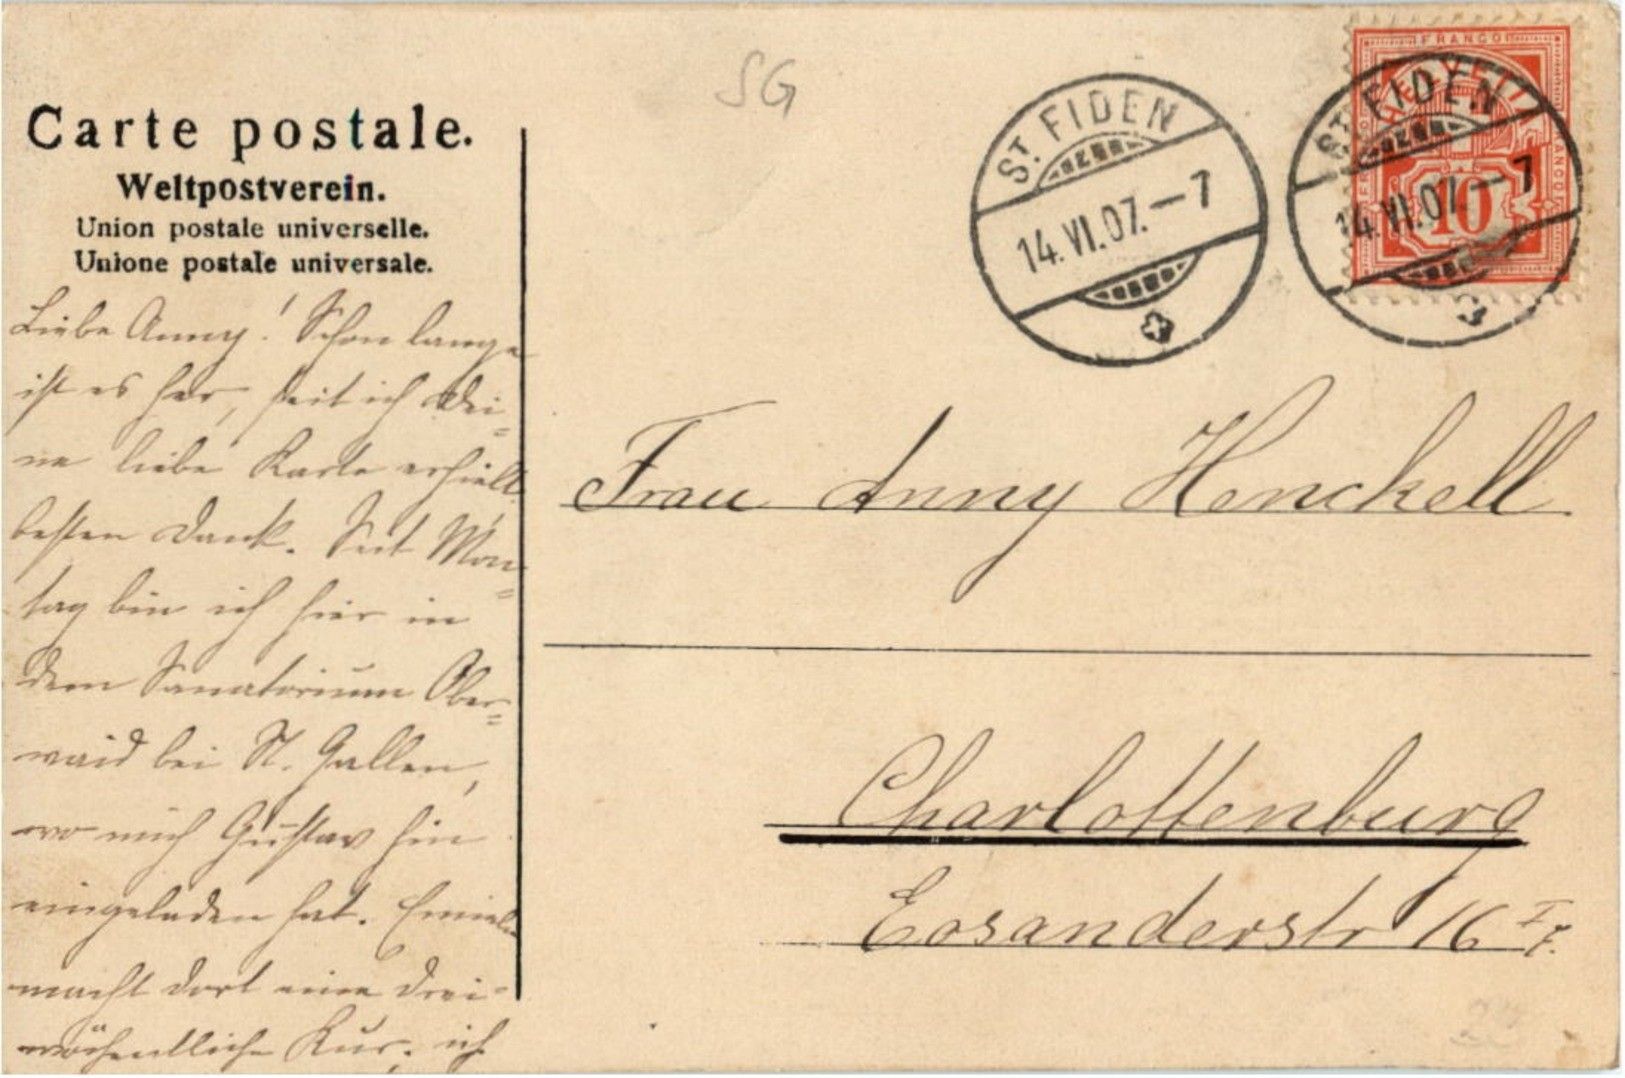 SG
Carte postale.
Weltpostverein.
Union postale universelle.
Unione postale universale.
ST. FIDEN
14.VI.07.—7
FRANCO
HELVETIA
10
ST. FIDEN
14.VI.07—7
Liebe Anny! Schon lange
ist es her, seit ich Dei=
ne liebe Karte erhielt,
besten Dank. Seit Mon=
tag bin ich hier in
dem Sanatorium Ober=
waid bei St. Gallen,
wo mich Gustav hin
eingeladen hat.
macht dort eine drei=
wöchentliche Kur, ich
Frau Anny Henckell.
Charlottenburg
Eosanderstr 16 I